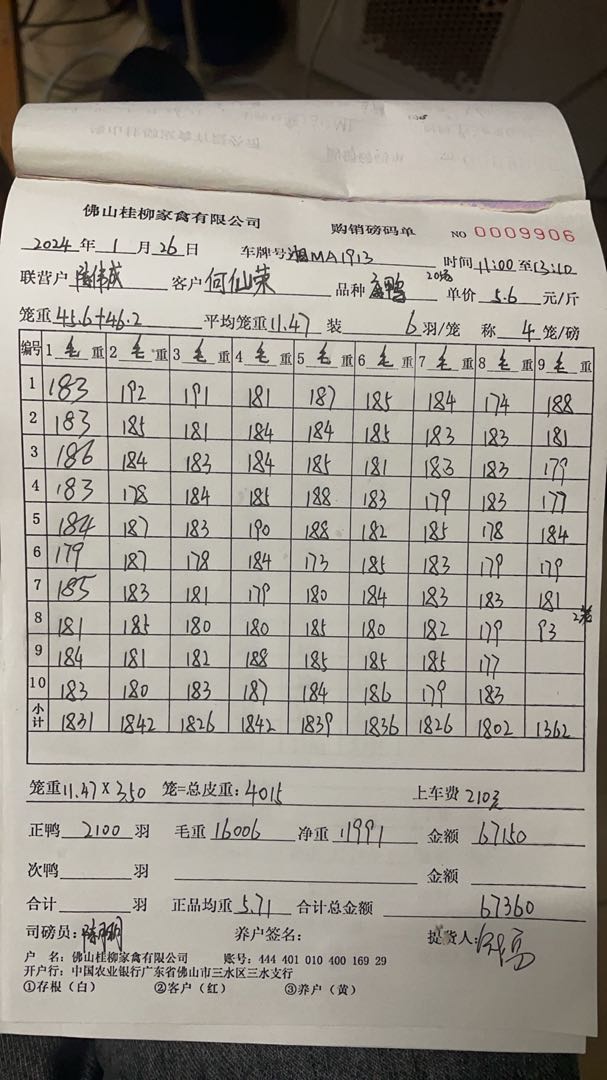 佛山桂柳家禽有限公司 购销磅码单 NO 0009906
2024年1月26日 车牌号湘MA1913 时间11:00至13:10
联营户陈伟成 客户何仙荣 品种 鸭 单价5.6元/斤
笼重45.6+46.2 平均笼重11.47 装6羽/笼 称4笼/磅
编号 1毛重 2毛重 3毛重 4毛重 5毛重 6毛重 7毛重 8毛重 9毛重
1 183 192 191 181 187 185 184 174 188
2 183 185 181 184 184 185 183 183 181
3 186 184 183 184 185 181 183 183 179
4 183 178 184 185 188 183 179 183 177
5 184 187 183 190 188 182 185 178 184
6 179 187 178 184 173 185 183 179 179
7 185 183 181 179 180 184 183 183 181
8 181 185 180 180 185 180 182 179 93 2笼
9 184 181 182 188 185 185 185 177
10 183 180 183 187 184 186 179 183
小计 1831 1842 1826 1842 1839 1836 1826 1802 1362
笼重11.47×350笼=总皮重:4015 上车费210元
正鸭2100羽 毛重16006 净重11991 金额67150
次鸭 羽 金额
合计 羽 正品均重5.71 合计总金额67360
司磅员: 养户签名: 提货人:
户 名:佛山桂柳家禽有限公司 账号:444 401 010 400 169 29
开户行:中国农业银行广东省佛山市三水区三水支行
①存根(白) ②客户(红) ③养户(黄)